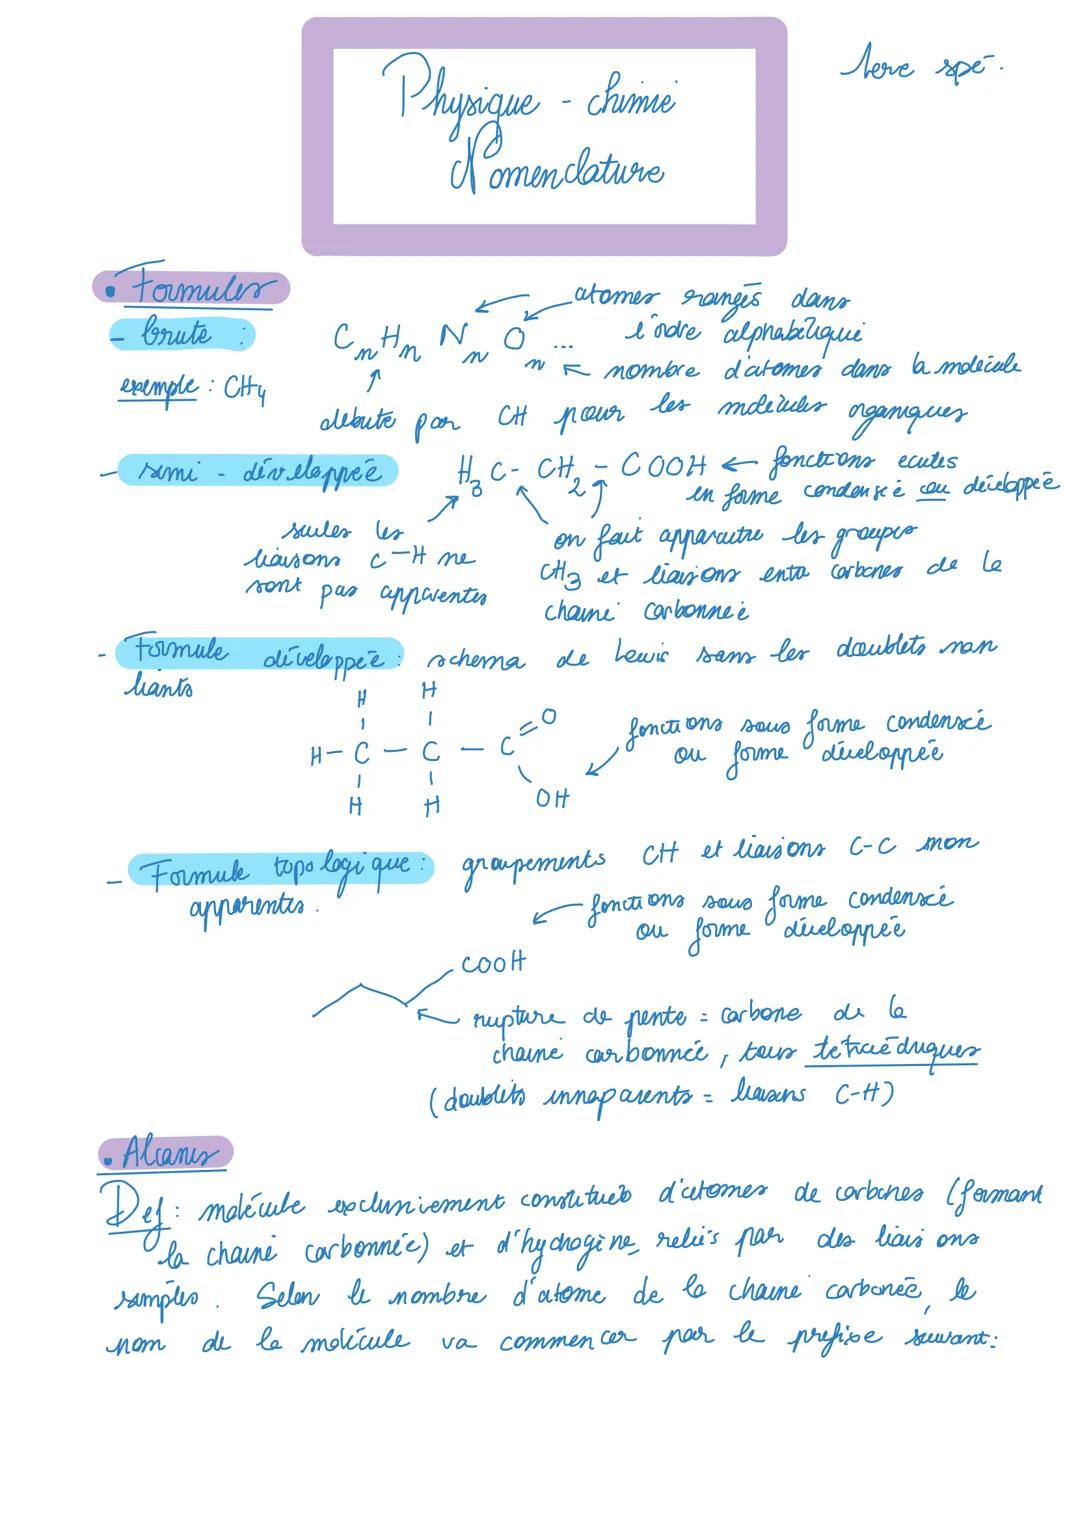 1ere spé.
Physique - chimie
Nomenclature
• Formules
- brute :
atomes rangés dans
l'ordre alphabétique
CnHn Nn On ...
nombre d'atomes dans la molécule
exemple : CH4
débute par CH pour les molécules organiques
- semi - développée
H3C - CH2 - COOH ← fonctions écrites
en forme condensée ou développée
seules les
liaisons C-H ne
sont pas apparentes
on fait apparaitre les groupes
CH3 et liaisons entre carbones de la
chaine carbonnée
- Formule développée : schema de Lewis sans les doublets non
liants
H H
H - C - C - C = O
H H OH
fonctions sous forme condensée
ou forme développée
- Formule topologique : groupements CH et liaisons C-C non
apparentes.
fonctions sous forme condensée
ou forme développée
COOH
rupture de pente = carbone de la
chaine carbonnée, tous tetraédriques
(doublets innaparents = liaisons C-H)
• Alcanes
Def : molécule exclusivement constituée d'atomes de carbones (formant
la chaine carbonnée) et d'hydrogène, reliés par des liaisons
simples. Selon le nombre d'atome de la chaine carbonée, le
nom de la molécule va commencer par le préfixe suivant :